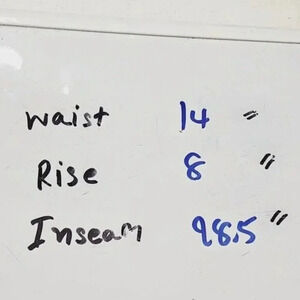 waist 14 "
Rise 8 "
Inseam 28.5 "